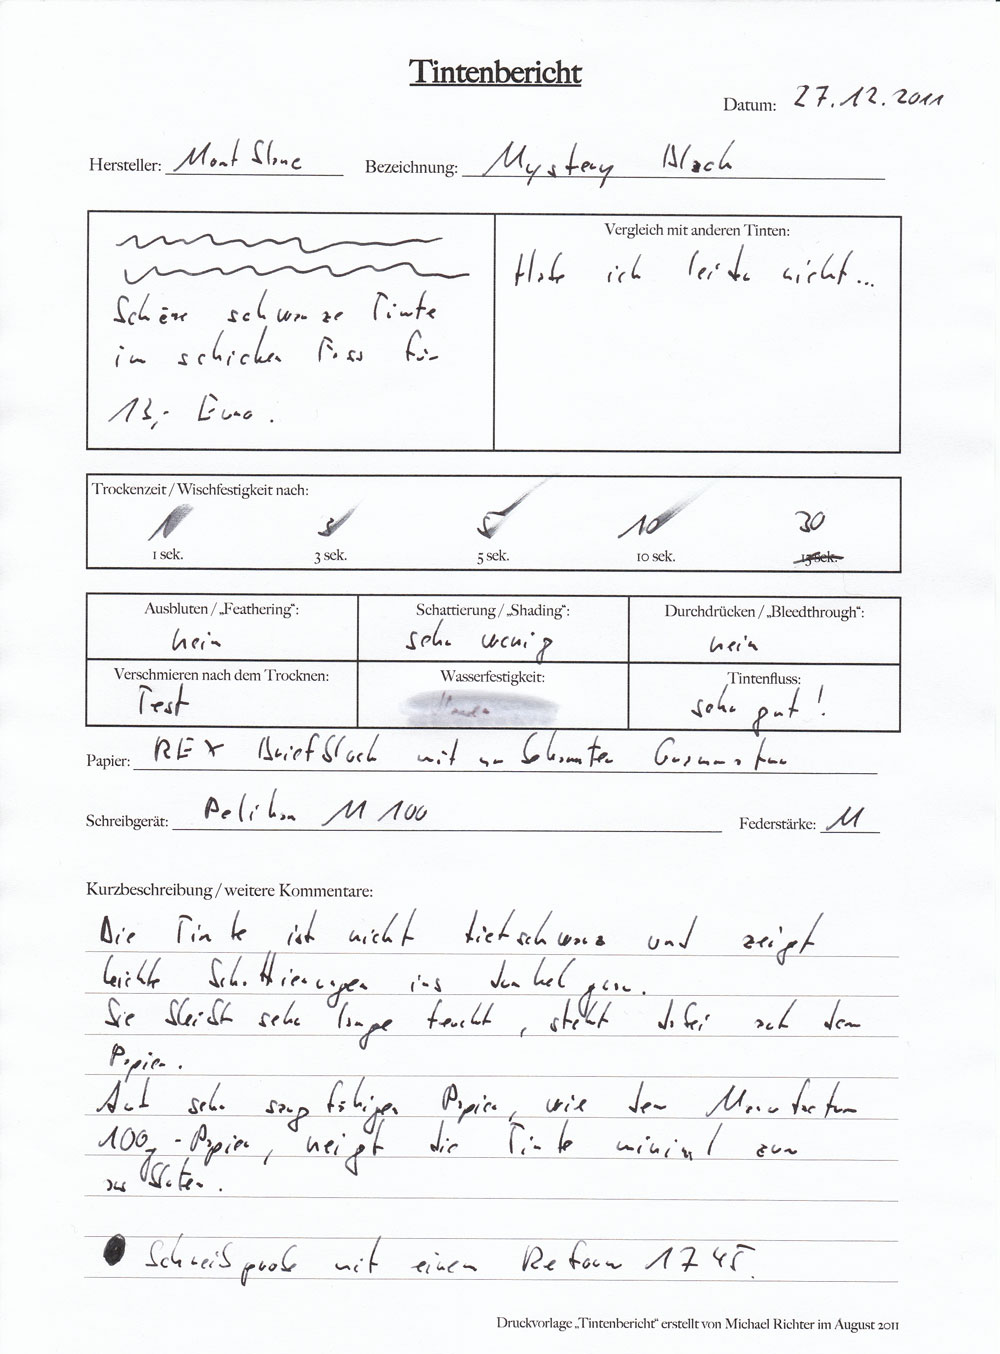 Tintenbericht
Datum: 27.12.2011
Hersteller: Mont Blanc Bezeichnung: Mystery Black
Schöne schwarze Tinte
im schicken Fass für
13,- Euro.
Vergleich mit anderen Tinten:
Habe ich leider nicht...
Trockenzeit / Wischfestigkeit nach:
1 3 5 10 30
1 sek. 3 sek. 5 sek. 10 sek. 15 sek.
Ausbluten / „Feathering“: Schattierung / „Shading“: Durchdrücken / „Bleedthrough“:
nein sehr wenig nein
Verschmieren nach dem Trocknen: Wasserfestigkeit: Tintenfluss:
Test sehr gut!
Papier: REX Briefblock mit
Schreibgerät: Pelikan M 100 Federstärke: M
Kurzbeschreibung / weitere Kommentare:
Die Tinte ist nicht tiefschwarz und zeigt
leichte Schattierungen ins dunkelgrau.
Sie bleibt sehr lange feucht, steht dabei auf dem
Papier.
Auf sehr saugfähigen Papier, wie dem Manufactum
100g-Papier, neigt die Tinte minimal zum
ausbluten.
Schreibprobe mit einem Reform 1745.
Druckvorlage „Tintenbericht“ erstellt von Michael Richter im August 2011